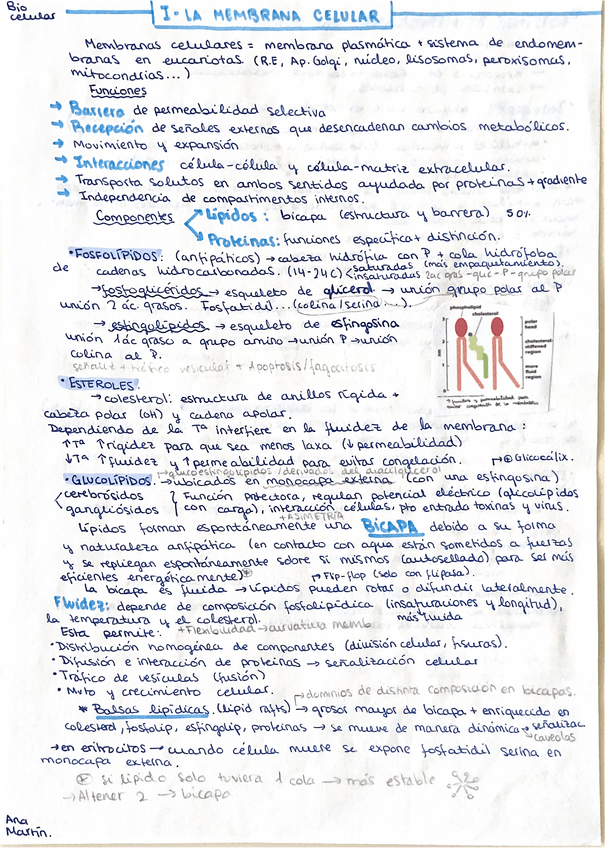 Bio
celular
I- LA MEMBRANA CELULAR
Membranas celulares = membrana plasmática + sistema de endomem-
branas en eucariotas (R.E, Ap. Golgi, núcleo, lisosomas, peroxisomas,
mitocondrias...)
Funciones
→ Barrera de permeabilidad selectiva
→ Recepción de señales externas que desencadenan cambios metabólicos.
→ Movimiento y expansión
→ Interacciones célula-célula y célula-matriz extracelular.
→ Transporta solutos en ambos sentidos ayudado por proteínas + gradiente
→ Independencia de compartimentos internos.
Componentes
Lípidos: bicapa (estructura y barrera) 50%.
Proteínas: funciones específica + distinción.
• FOSFOLÍPIDOS: (antipáticos) → cabeza hidrófila con P + cola hidrófoba
de cadenas hidrocarbonadas. (14-24C) saturadas (más empaquetamiento).
insaturadas 2ac gras-glic-P-grupo polar
→ fosfoglicéridos → esqueleto de glicerol → unión grupo polar al P
unión 2 ác. grasos. Fosfatidil... (colina/serina...).
→ esfingolípidos → esqueleto de esfingosina
unión 1 ác graso a grupo amino → unión P → unión
colina al P.
señaliz + tráfico vesicular + Apoptosis/fagocitosis
phospholipid
cholesterol
polar head
cholesterol-stiffened region
more fluid region
• ESTEROLES.
→ colesterol: estructura de anillos rígida +
cabeza polar (OH) y cadena apolar.
Dependiendo de la Tª interfiere en la fluidez de la membrana:
↑Tª ↑rigidez para que sea menos laxa (↓permeabilidad)
↓Tª ↑fluidez y ↑permeabilidad para evitar congelación. → Glicocálix.
→ glucoesfingolípidos/derivados del diacilglicerol
• GLUCOLÍPIDOS. → ubicados en monocapa externa (con una esfingosina)
cerebrósidos
gangliósidos
Función protectora, regulan potencial eléctrico (glicolípidos
con carga), interacción células, pto entrada toxinas y virus.
+ ASIMETRÍA
Lípidos forman espontáneamente una BICAPA debido a su forma
y naturaleza anfipática (en contacto con agua están sometidos a fuerzas
y se repliegan espontáneamente sobre sí mismos (autosellado) para ser más
eficientes energéticamente)
→ Flip-flop (solo con flipasa).
La bicapa es fluida → lípidos pueden rotar o difundir lateralmente.
Fluidez: depende de composición fosfolipídica (insaturaciones y longitud),
la temperatura y el colesterol. más fluida
Esta permite: + Flexibilidad → curvatura memb
• Distribución homogénea de componentes (división celular, fisuras).
• Difusión e interacción de proteínas → señalización celular
• Tráfico de vesículas (fusión)
• Nuto y crecimiento celular.
→ dominios de distinta composición en bicapas.
* Balsas lipídicas. (lipid rafts) → grosor mayor de bicapa + enriquecido en
colesterol, fosfolip, esfingolip, proteínas → se mueve de manera dinámica → señalizac
caveolas
→ en eritrocitos → cuando célula muere se expone fosfatidil serina en
monocapa externa.
si lípido solo tuviera 1 cola → más estable
→ Al tener 2 → bicapa
Ana
Martín.